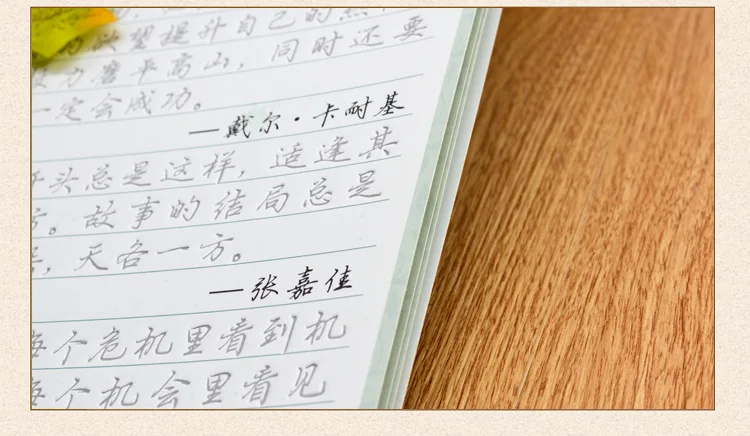 欲望提升自己的
力磨平高山，同时还要
一定会成功。
—戴尔·卡耐基
头总是这样，适逢其
方。故事的结局总是
，天各一方。
—张嘉佳
每个危机里看到机
每个机会里看见